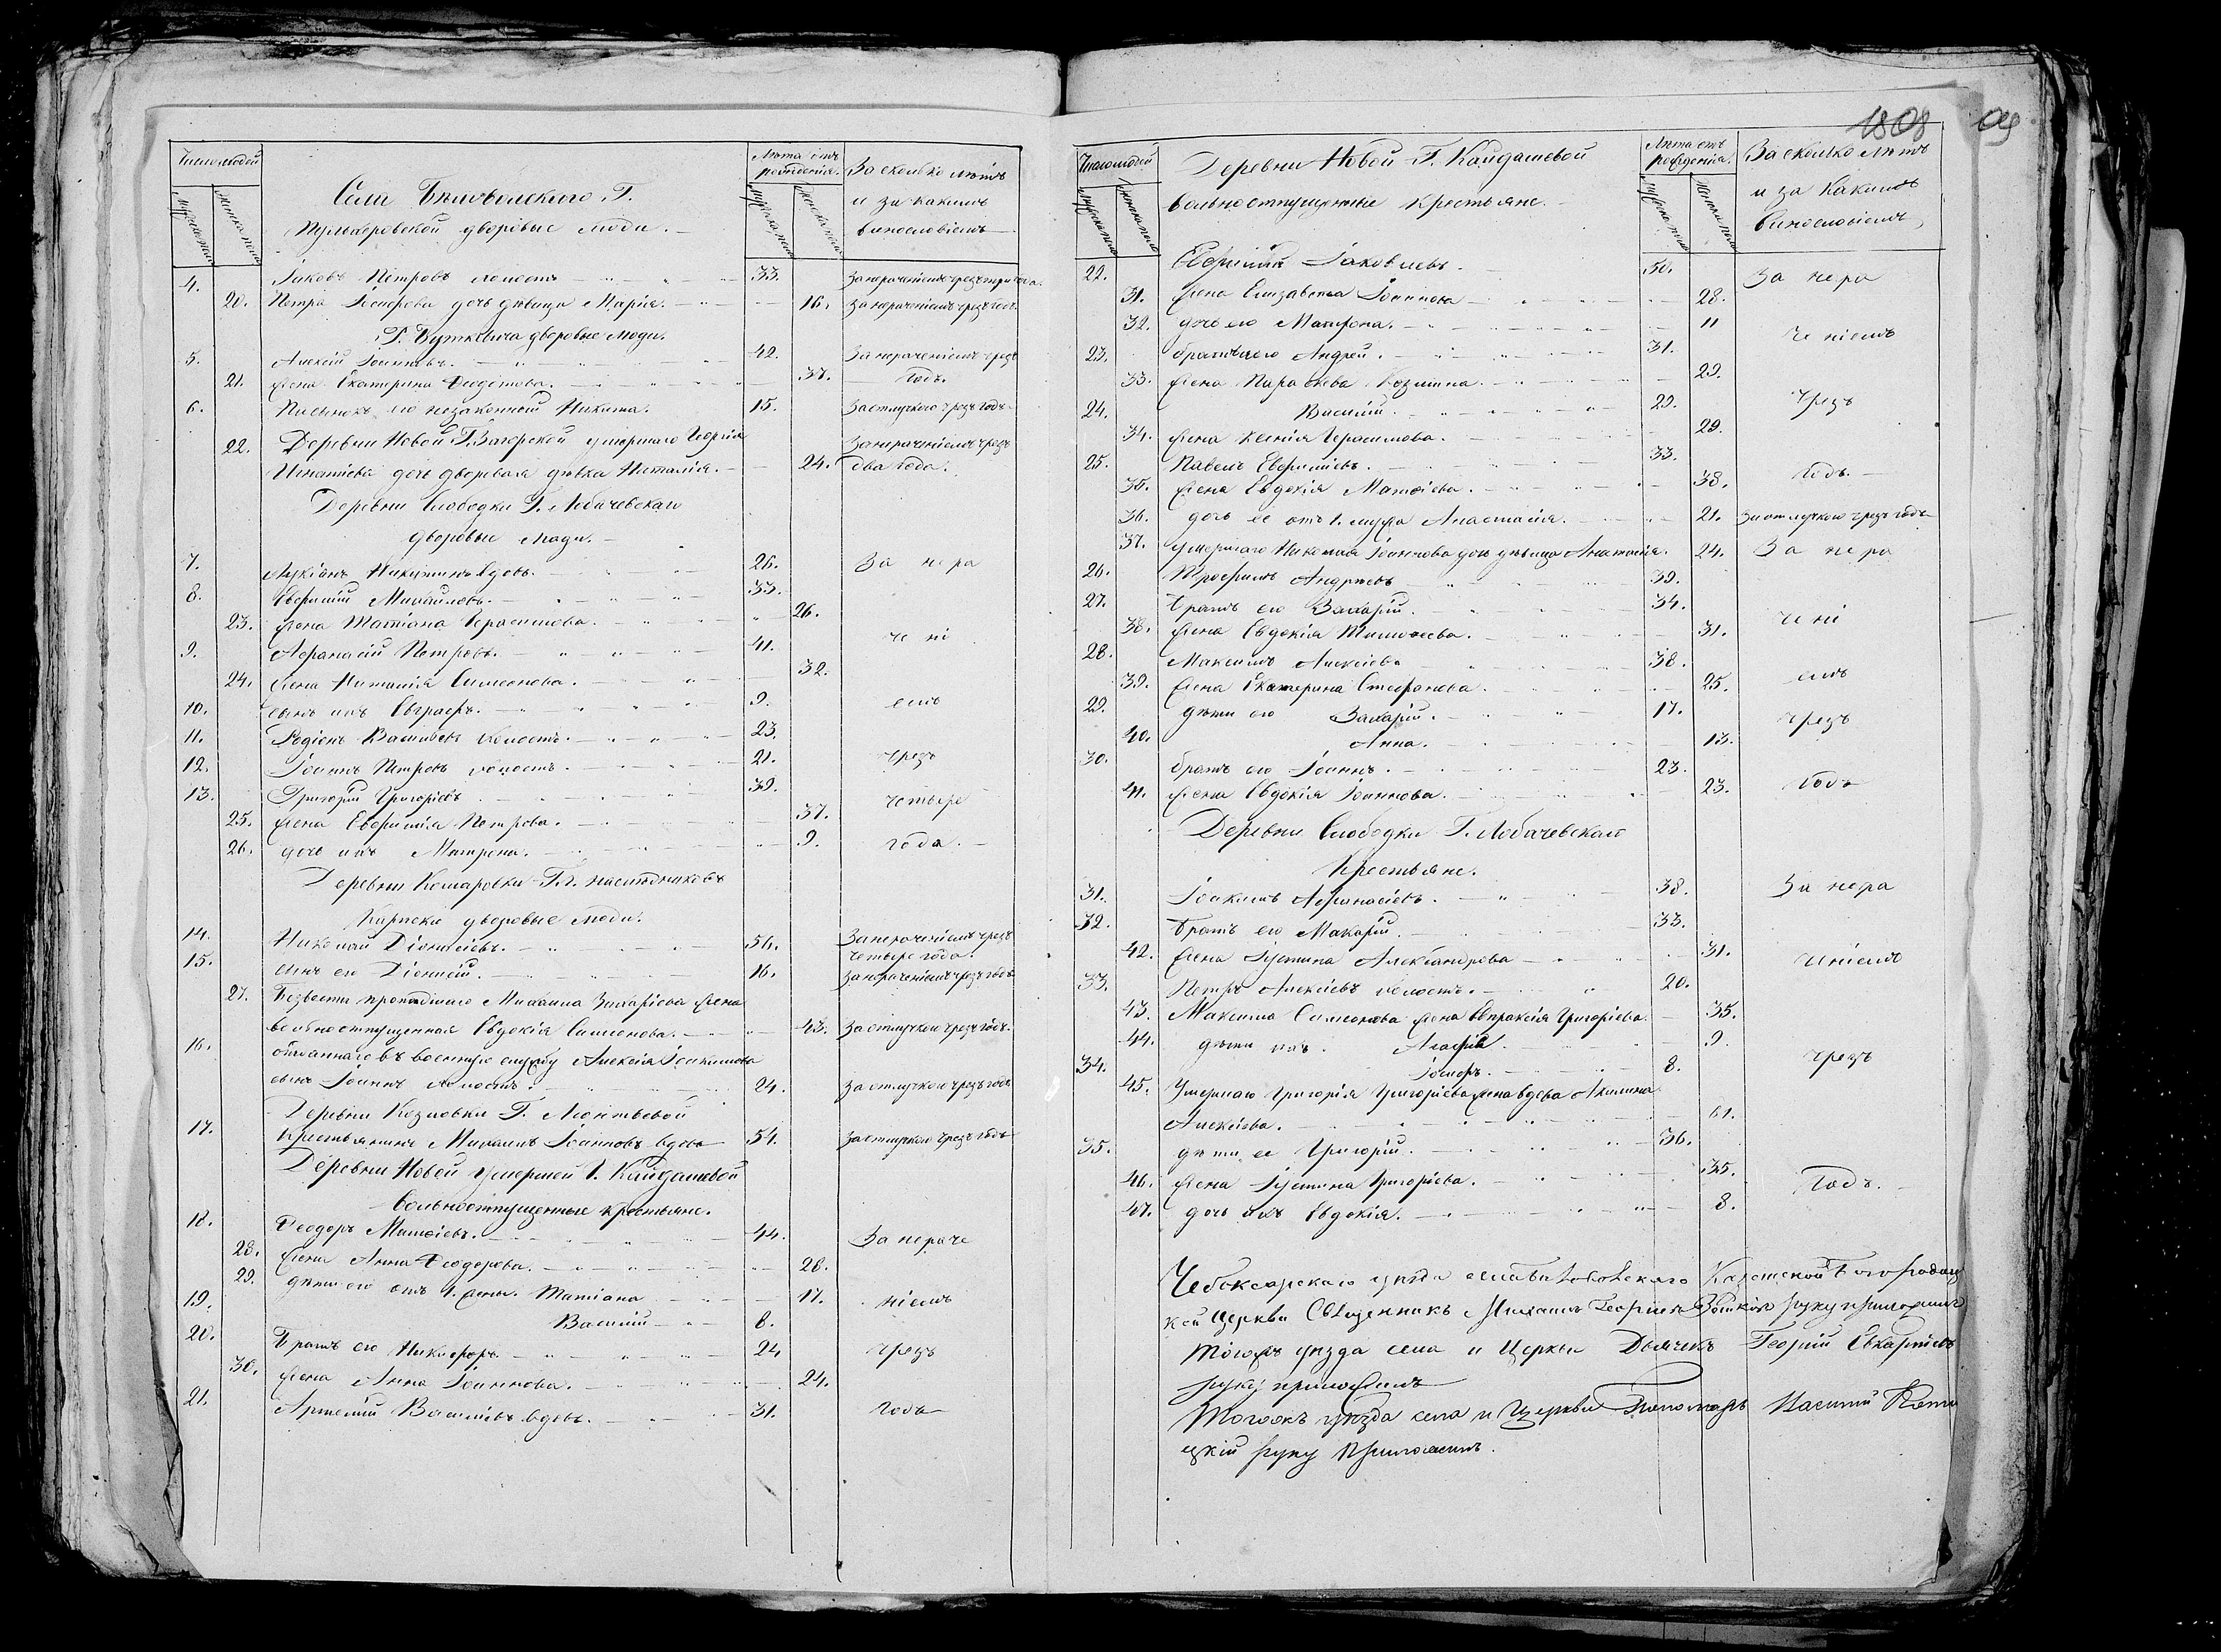 Число людей
Мужеска полу
Женска полу
Села Бѣловолжскаго Г.
Пульхеровской дворовые люди.
Лѣта отъ рожденія.
Мужеска полу
Женска полу
За сколько лѣтъ
и за какимъ
винословіемъ
4. Іаковъ Петровъ холостъ 33. За нераченіемъ чрезъ три года.
20. Петра Іосифова дочь дѣвица Марія. 16. За нераченіемъ чрезъ годъ.
Г. Буткевича дворовые люди.
5. Алексій Іоанновъ. 42. За нераченіемъ чрезъ
21. Жена Екатерина Феодотова. 37. годъ.
6. его незаконный Никита. 15. За отлучкою чрезъ годъ.
22. Деревни Новой Г. Загорской умершаго Георгія За нераченіемъ чрезъ
Игнатіева дочь дворовая дѣвка Наталія. 24. два года.
Деревни Слободки Г. Лобачевскаго
дворовые люди.
7. Лукіанъ Никитинъ вдовъ. 26. За нера
8. Евфимій Михайловъ. 33.
23. Жена Татіана Герасимова. 26.
9. Афанасій Петровъ. 41. чені
24. Жена Наталія Симеонова. 32.
10. Сынъ ихъ Евграфъ. 9. емъ
11. Родіонъ Васильевъ холостъ. 23.
12. Іоаннъ Петровъ холостъ. 21. чрезъ
13. Григорій Григоріевъ. 39.
25. Жена Евфимія Петрова. 37. четыре
26. дочь ихъ Матрена. 9. года.
Деревни Комаровки Гг. наслѣдниковъ
дворовые люди.
14. Николай Діонисіевъ. 56. За нераченіемъ чрезъ
четыре года.
15. сынъ его Діонисій. 16. За нераченіемъ чрезъ годъ
27. Безвести пропадшаго Михаила Захаріева жена
вольноотпущенная Евдокія Симеонова. 43. За отлучкою чрезъ годъ.
16. отданнаго въ военную службу Алексія Іоакимова
сынъ Іоаннъ холостъ. 24. За отлучкою чрезъ годъ
Деревни Козловки Г. Леонтьевой
17. Крестьянинъ Михаилъ Іоанновъ вдовъ 54. За отлучкою чрезъ годъ
Деревни Новой умершей Г. Кайдашевой
вольноотпущенные крестьяне.
18. Феодоръ Матфіевъ. 44. За нераче
28. Жена Анна Феодорова. 28.
29. дѣти его отъ 1. жены. Татіана 17. ніемъ
19. Василій 8.
20. Братъ его Никифоръ. 24 чрезъ
30. Жена Анна Іоаннова. 24.
21. Артемій Васильевъ вдовъ. 31. годъ
1808 09
Число людей
Мужеска полу
Женска полу
Деревни Новой Г. Кайдашевой
вольноотпущенные крестьяне.
Лѣта отъ рожденія.
Мужеска полу
Женска полу
За сколько лѣтъ
и за какимъ
винословіемъ
22. Евфимій Іаковлевъ. 50. За нера
31. Жена Елизавета Іоаннова 28.
32. дочь его Матрона. 11 ченіемъ
23. братъ его Андрей. 31.
33. Жена Параскева Козмина. 29.
24. Василій. 29. чрезъ
34. Жена Ксенія Герасимова. 29.
25. Павелъ Евфиміевъ. 33.
35. Жена Евдокія Матфіева. 38. годъ.
36. дочь ее отъ 1. мужа Анастасія. 21. За отлучкою чрезъ годъ
37. умершаго Николая Іоаннова дочь дѣвица Анастасія. 24. За нера
26. Трофимъ Андреевъ 39.
27. братъ его Захарій. 34.
38. Жена Евдокія Тимофеева. 31. чені
28. Максимъ Алексіевъ 38.
39. Жена Екатерина Стефанова. 25. емъ
29. дѣти его Захарій. 17.
40. Анна. 13. чрезъ
30. братъ его Іоаннъ. 23.
41. Жена Евдокія Іоаннова. 23. годъ
Деревни Слободки Г. Лобачевскаго
Крестьяне.
31. Іоакимъ Афанасіевъ. 38. За нера
32. Братъ его Макарій. 33.
42. Жена Іустина Александрова 31. ченіемъ
33. Петръ Алексіевъ холостъ. 20.
43. Максима Симеонова жена Евпраксія Григоріева. 35.
44. дѣти ихъ. Агафія. 9. чрезъ
34. Іосифъ. 8.
45. Умершаго Григорія Григоріева жена вдова Акилина
Алексіева. 61.
35. дѣти ее Григорій. 36.
46. Жена Іустина Григоріева. 35. годъ.
47. дочь ихъ Евдокія. 8.
Чебоксарскаго уѣзда села Бѣловолжскаго Казанской Богородиц
кой Церкви Священникъ Михаилъ Георгіевъ руку приложилъ
Тогожъ уѣзда села и Церкви Дьячекъ Георгій
руку приложилъ
Тогожъ уѣзда села и Церкви Пономарь Василій
цкій руку приложилъ.